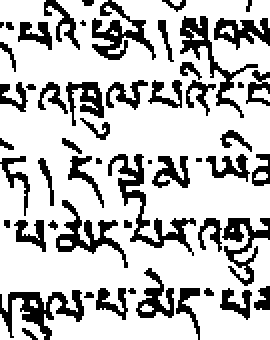 ་པའི་ཕྱིར། སྐབས
པ་འཁྲུལ་པའི་ངོ་བོ
ཏེ། དེ་ལྟ་མ་ཡིན
་པ་མེད་པར་འགྱུ
འཁྲུལ་པ་མེད་པར